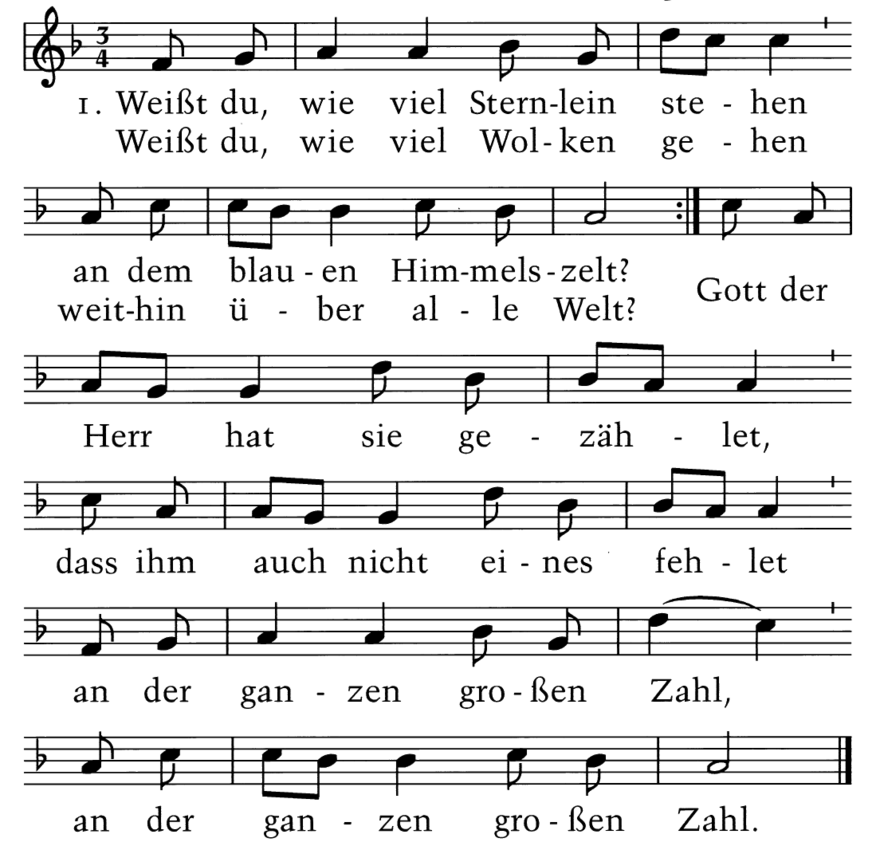 3
4
1. Weißt du, wie viel Stern-lein ste - hen
Weißt du, wie viel Wol - ken ge - hen
an dem blau - en Him-mels-zelt?
weit-hin ü - ber al - le Welt?
Gott der
Herr hat sie ge - zäh - let,
dass ihm auch nicht ei - nes feh - let
an der gan - zen gro - ßen Zahl,
an der gan - zen gro - ßen Zahl.